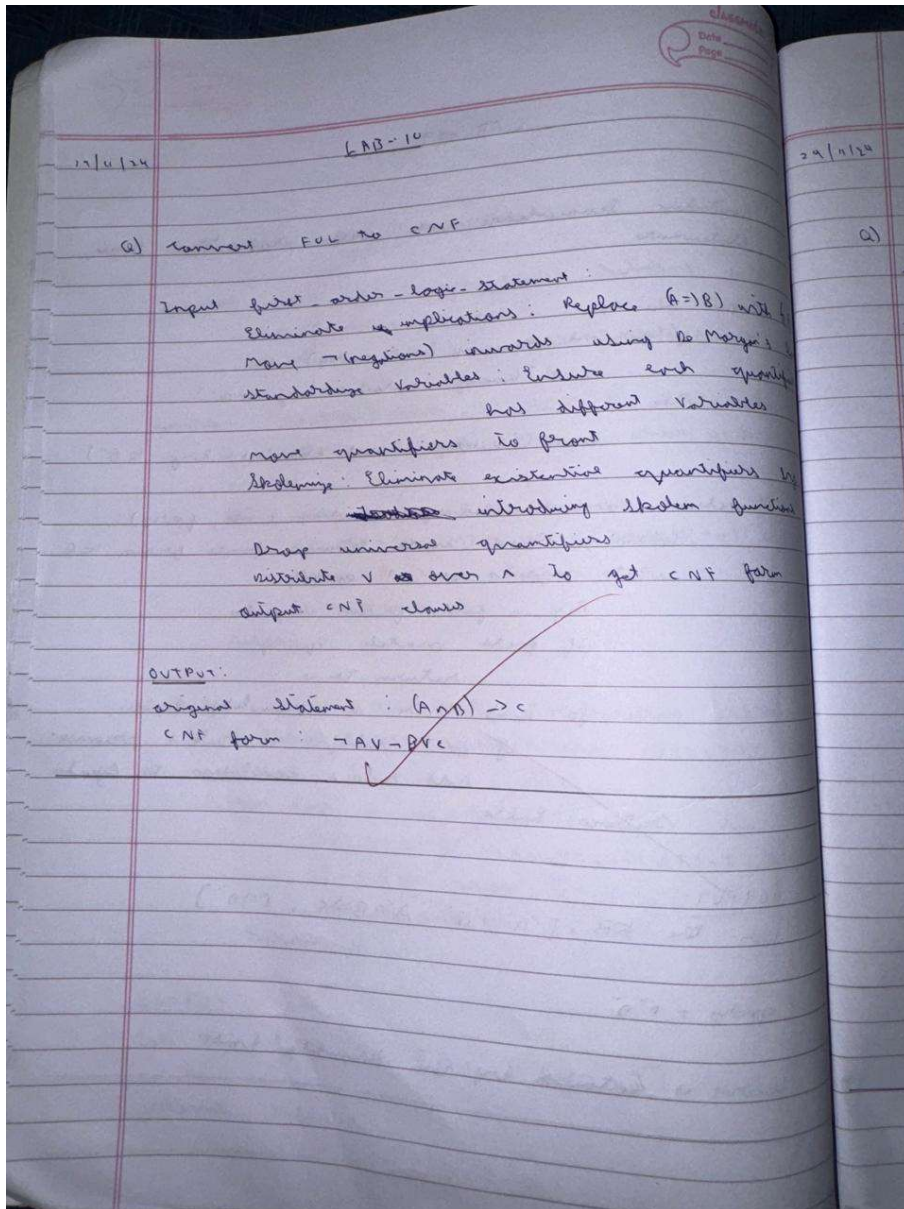 classmate
Date
Page
LAB-10
29/11/24
Q) Convert FOL to CNF
Q)
Input first-order-logic-statement:
Eliminate implications: Replace (A=>B) with
Move ¬(negations) inwards using De Morgan's
Standardize Variables: Ensure each quantif
has different Variables
Move quantifiers to front
Skolemize: Eliminate existential quantifiers
introducing Skolem function
Drop universal quantifiers
Distribute ∨ over ∧ to get CNF form
Output CNF clauses
OUTPUT:
Original Statement: (A∧B) -> C
CNF form: ¬A∨¬B∨C